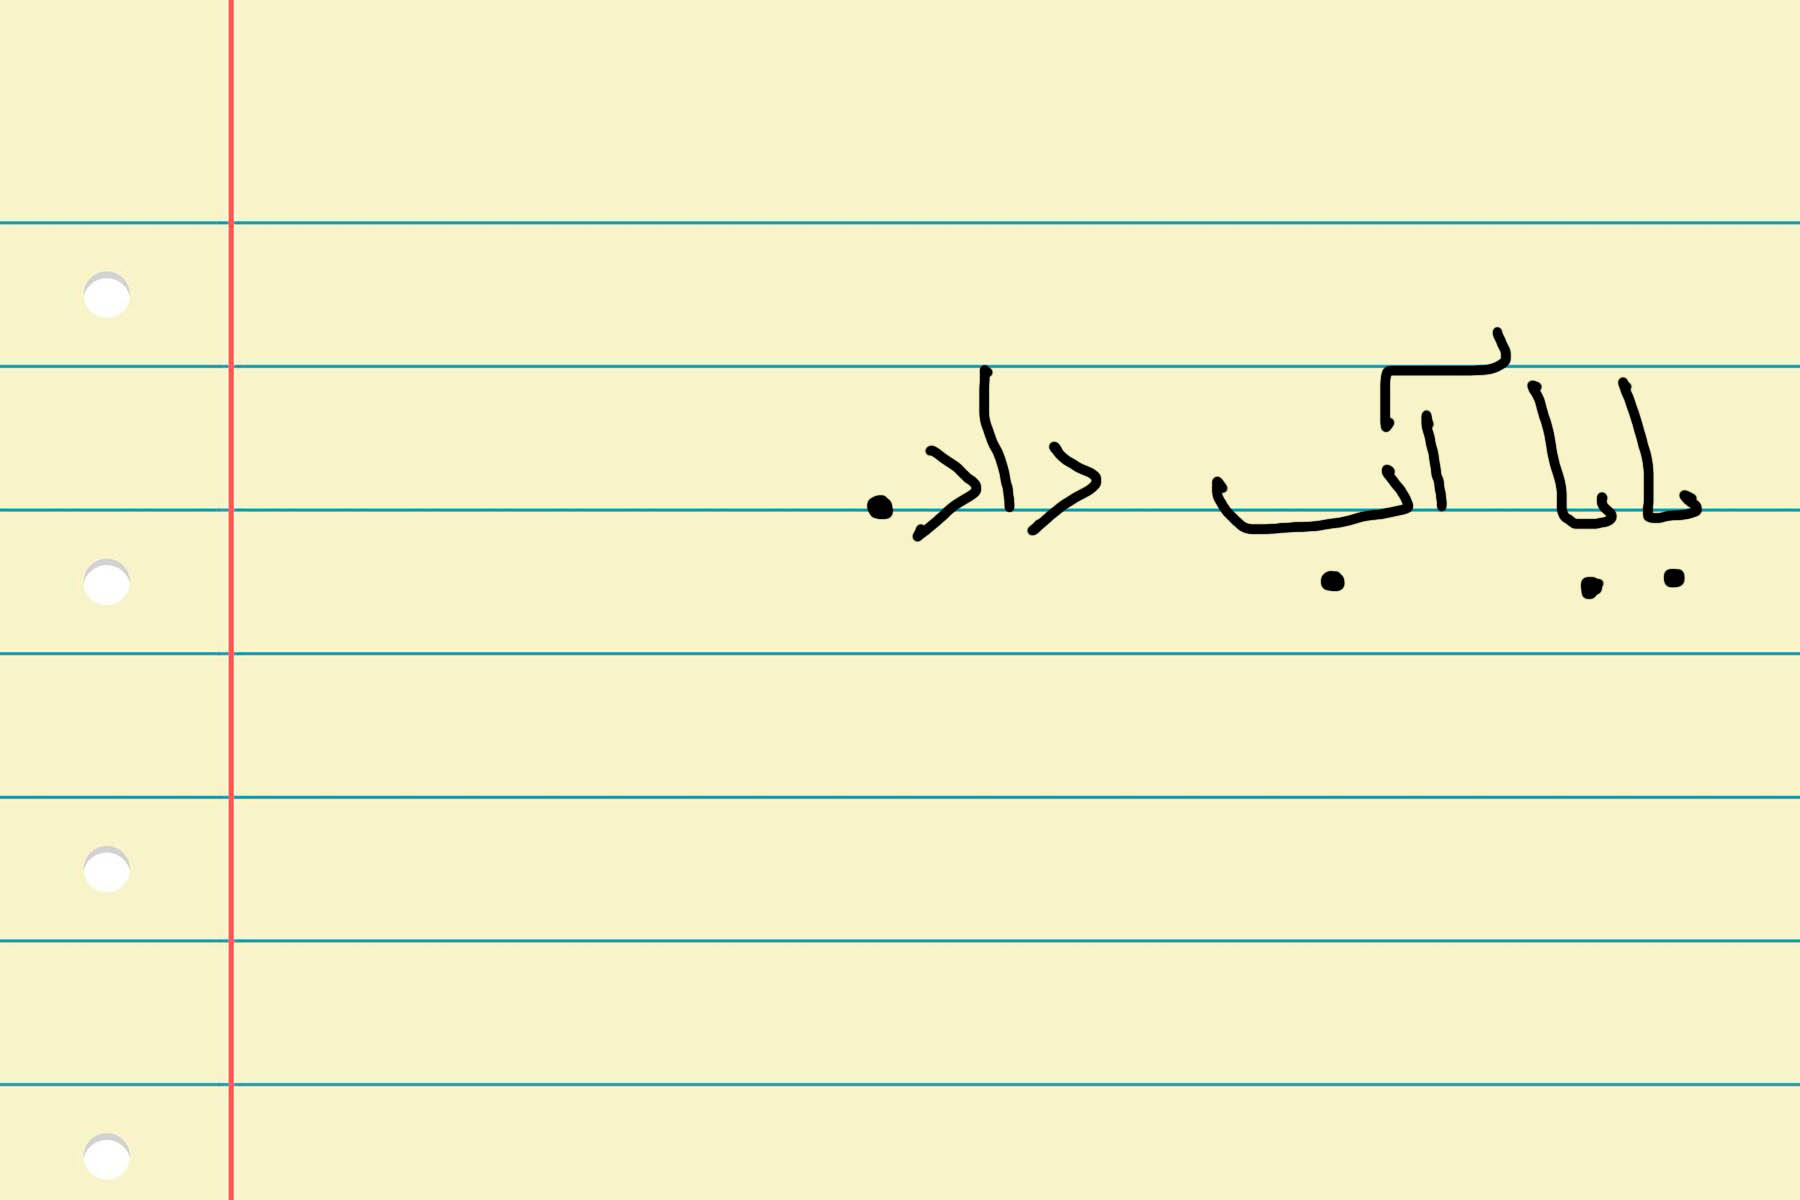 بابا آب داد.